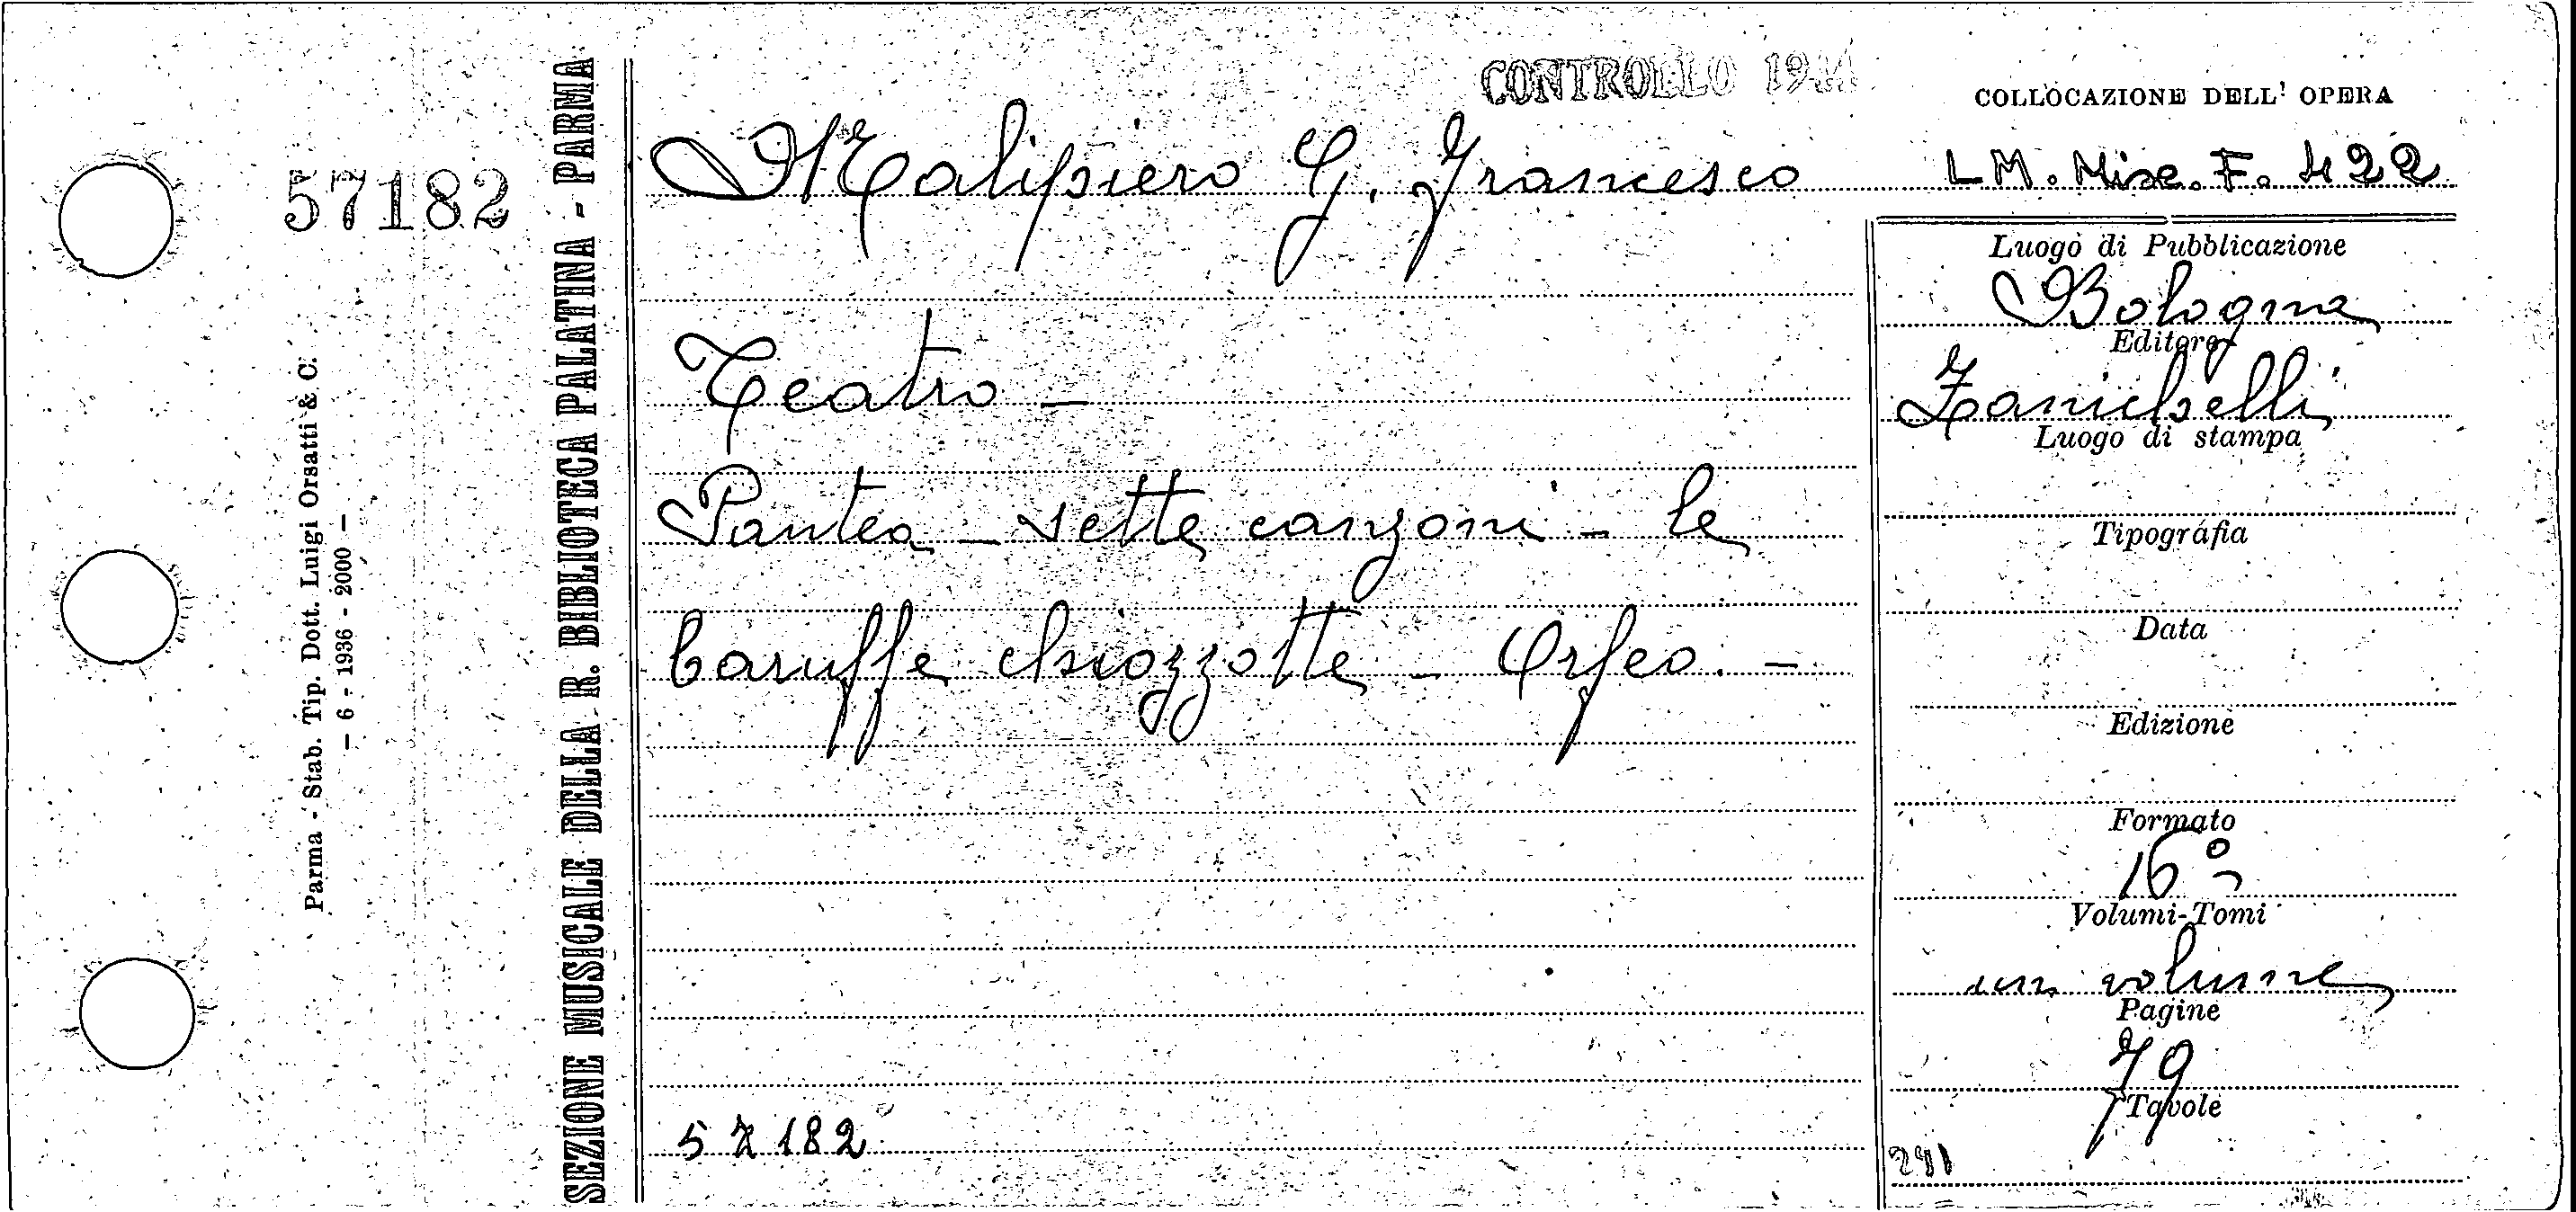 57182
Parma - Stab. Tip. Dott. Luigi Orsatti & C.
— 6 - 1936 - 2000 —
SEZIONE MUSICALE DELLA R. BIBLIOTECA PALATINA - PARMA
CONTROLLO
Malipiero G. Francesco
Teatro -
Pantea - sette canzoni - le
baruffe chiozzotte - Orfeo. -
57182
COLLOCAZIONE DELL' OPERA
LM. Misc. F. 422
Luogo di Pubblicazione
Bologna
Editore
Zanichelli
Luogo di stampa
Tipografia
Data
Edizione
Formato
16°
Volumi-Tomi
un volume
Pagine
79
Tavole
241